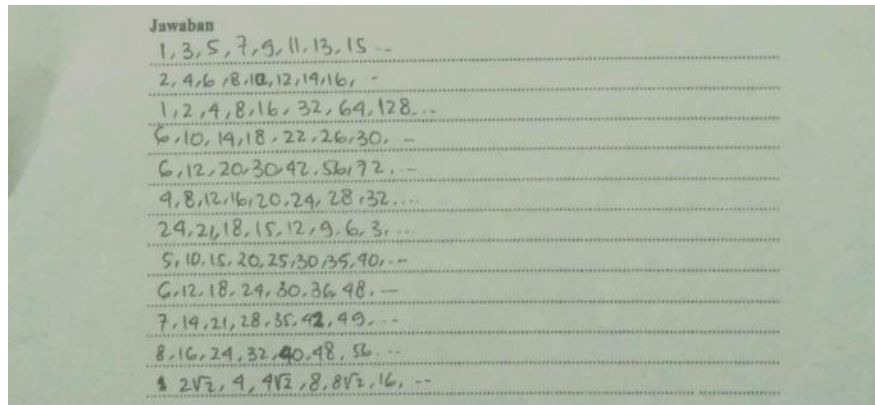 Jawaban
1, 3, 5, 7, 9, 11, 13, 15 ...
2, 4, 6, 8, 10, 12, 14, 16, ...
1, 2, 4, 8, 16, 32, 64, 128, ...
6, 10, 14, 18, 22, 26, 30, ...
6, 12, 20, 30, 42, 56, 72, ...
4, 8, 12, 16, 20, 24, 28, 32, ...
24, 21, 18, 15, 12, 9, 6, 3, ...
5, 10, 15, 20, 25, 30, 35, 40, ...
6, 12, 18, 24, 30, 36, 48, ...
7, 14, 21, 28, 35, 42, 49, ...
8, 16, 24, 32, 40, 48, 56 ...
2√2, 4, 4√2, 8, 8√2, 16, ...